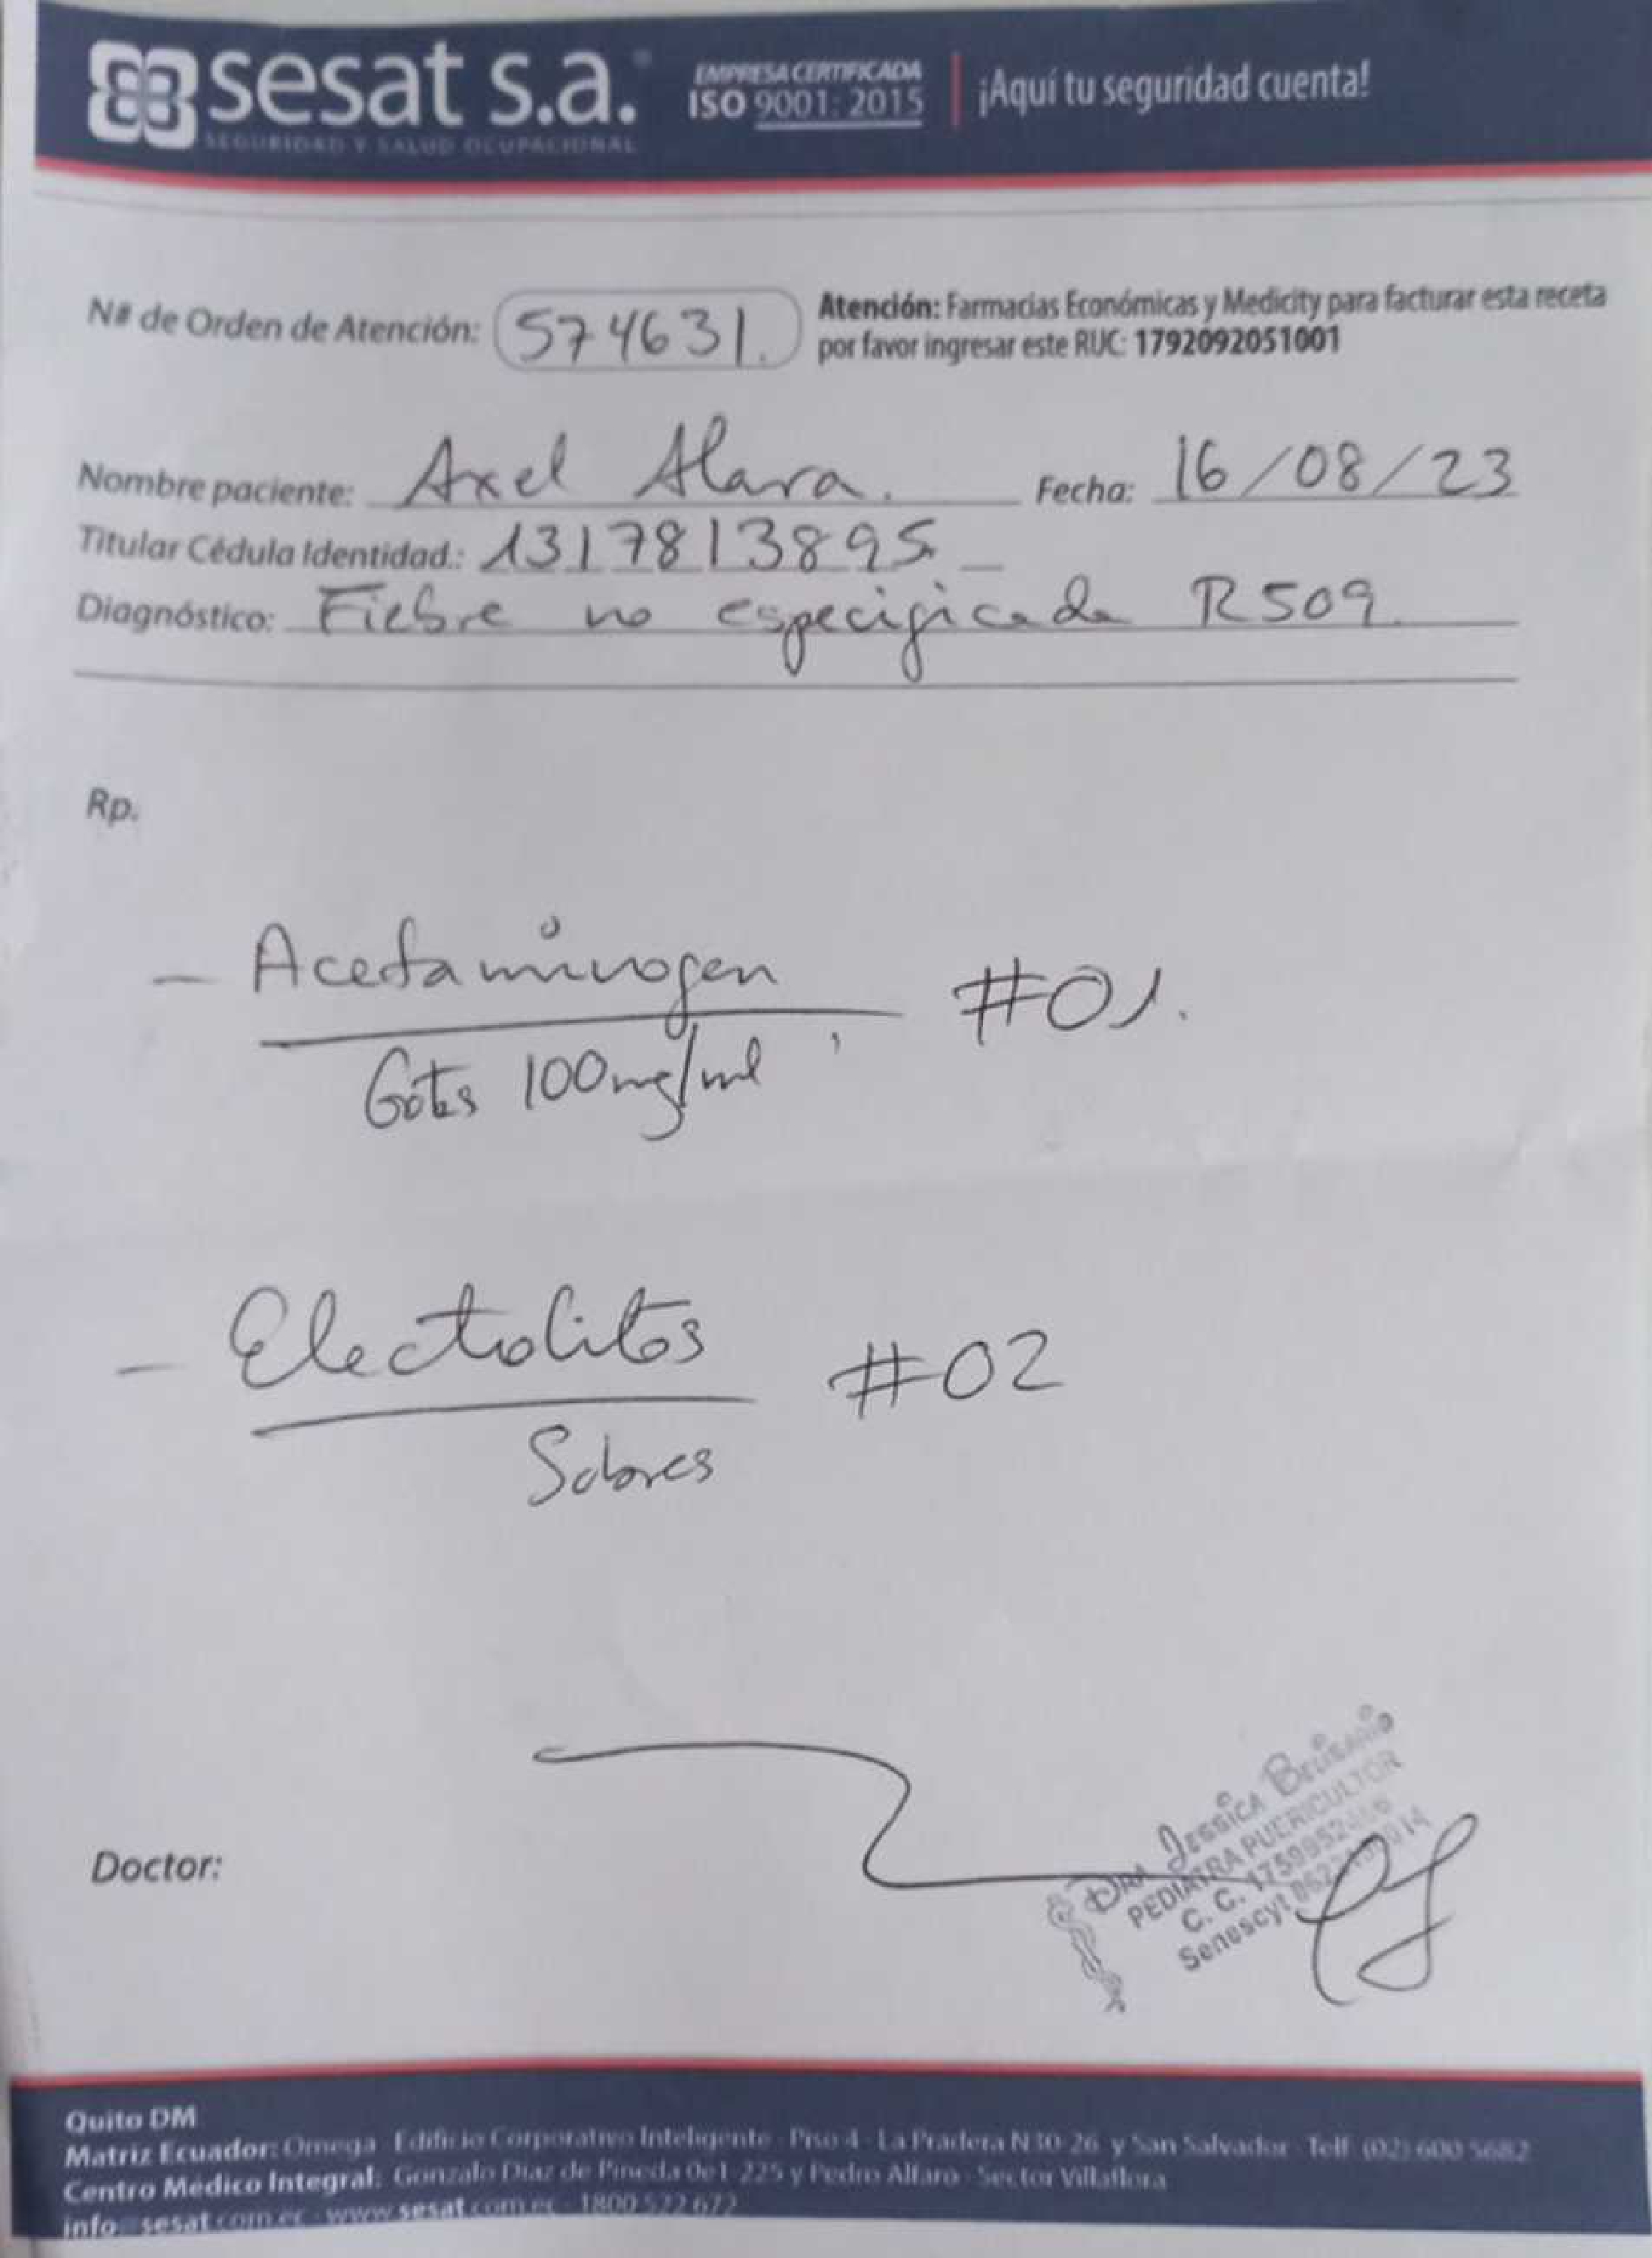 sesat s.a.
SEGURIDAD Y SALUD OCUPACIONAL
EMPRESA CERTIFICADA
ISO 9001: 2015
¡Aquí tu seguridad cuenta!
N# de Orden de Atención: 574631.
Atención: Farmacias Económicas y Medicity para facturar esta receta
por favor ingresar este RUC: 1792092051001
Nombre paciente: Axel Alava. Fecha: 16/08/23
Titular Cédula Identidad.: 1317813895
Diagnóstico: Fiebre no especificada R509.
Rp.
- Acetaminofen #01.
Gotas 100mg/ml
- Electrolitos #02
Sobres
Doctor:
DRA Jessica
PEDIATRA PUERICULTOR
C. C.
Senescyt
Quito DM
Matriz Ecuador: Omega - Edificio Corporativo Inteligente - Piso 4 - La Pradera N30-26 y San Salvador - Telf: (02) 600 5682
Centro Médico Integral: Gonzalo Díaz de Pineda Oe1-225 y Pedro Alfaro - Sector Villaflora
info@sesat.com.ec - www.sesat.com.ec - 1800 522 672